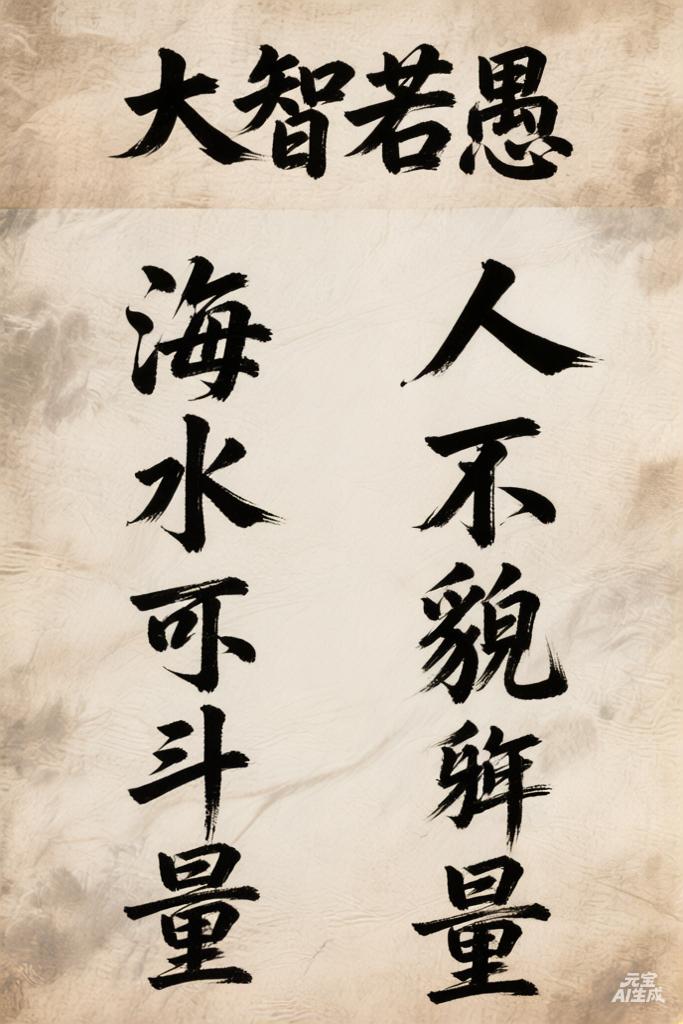 大智若愚
人不貌量
海水可斗量
元宝
AI生成